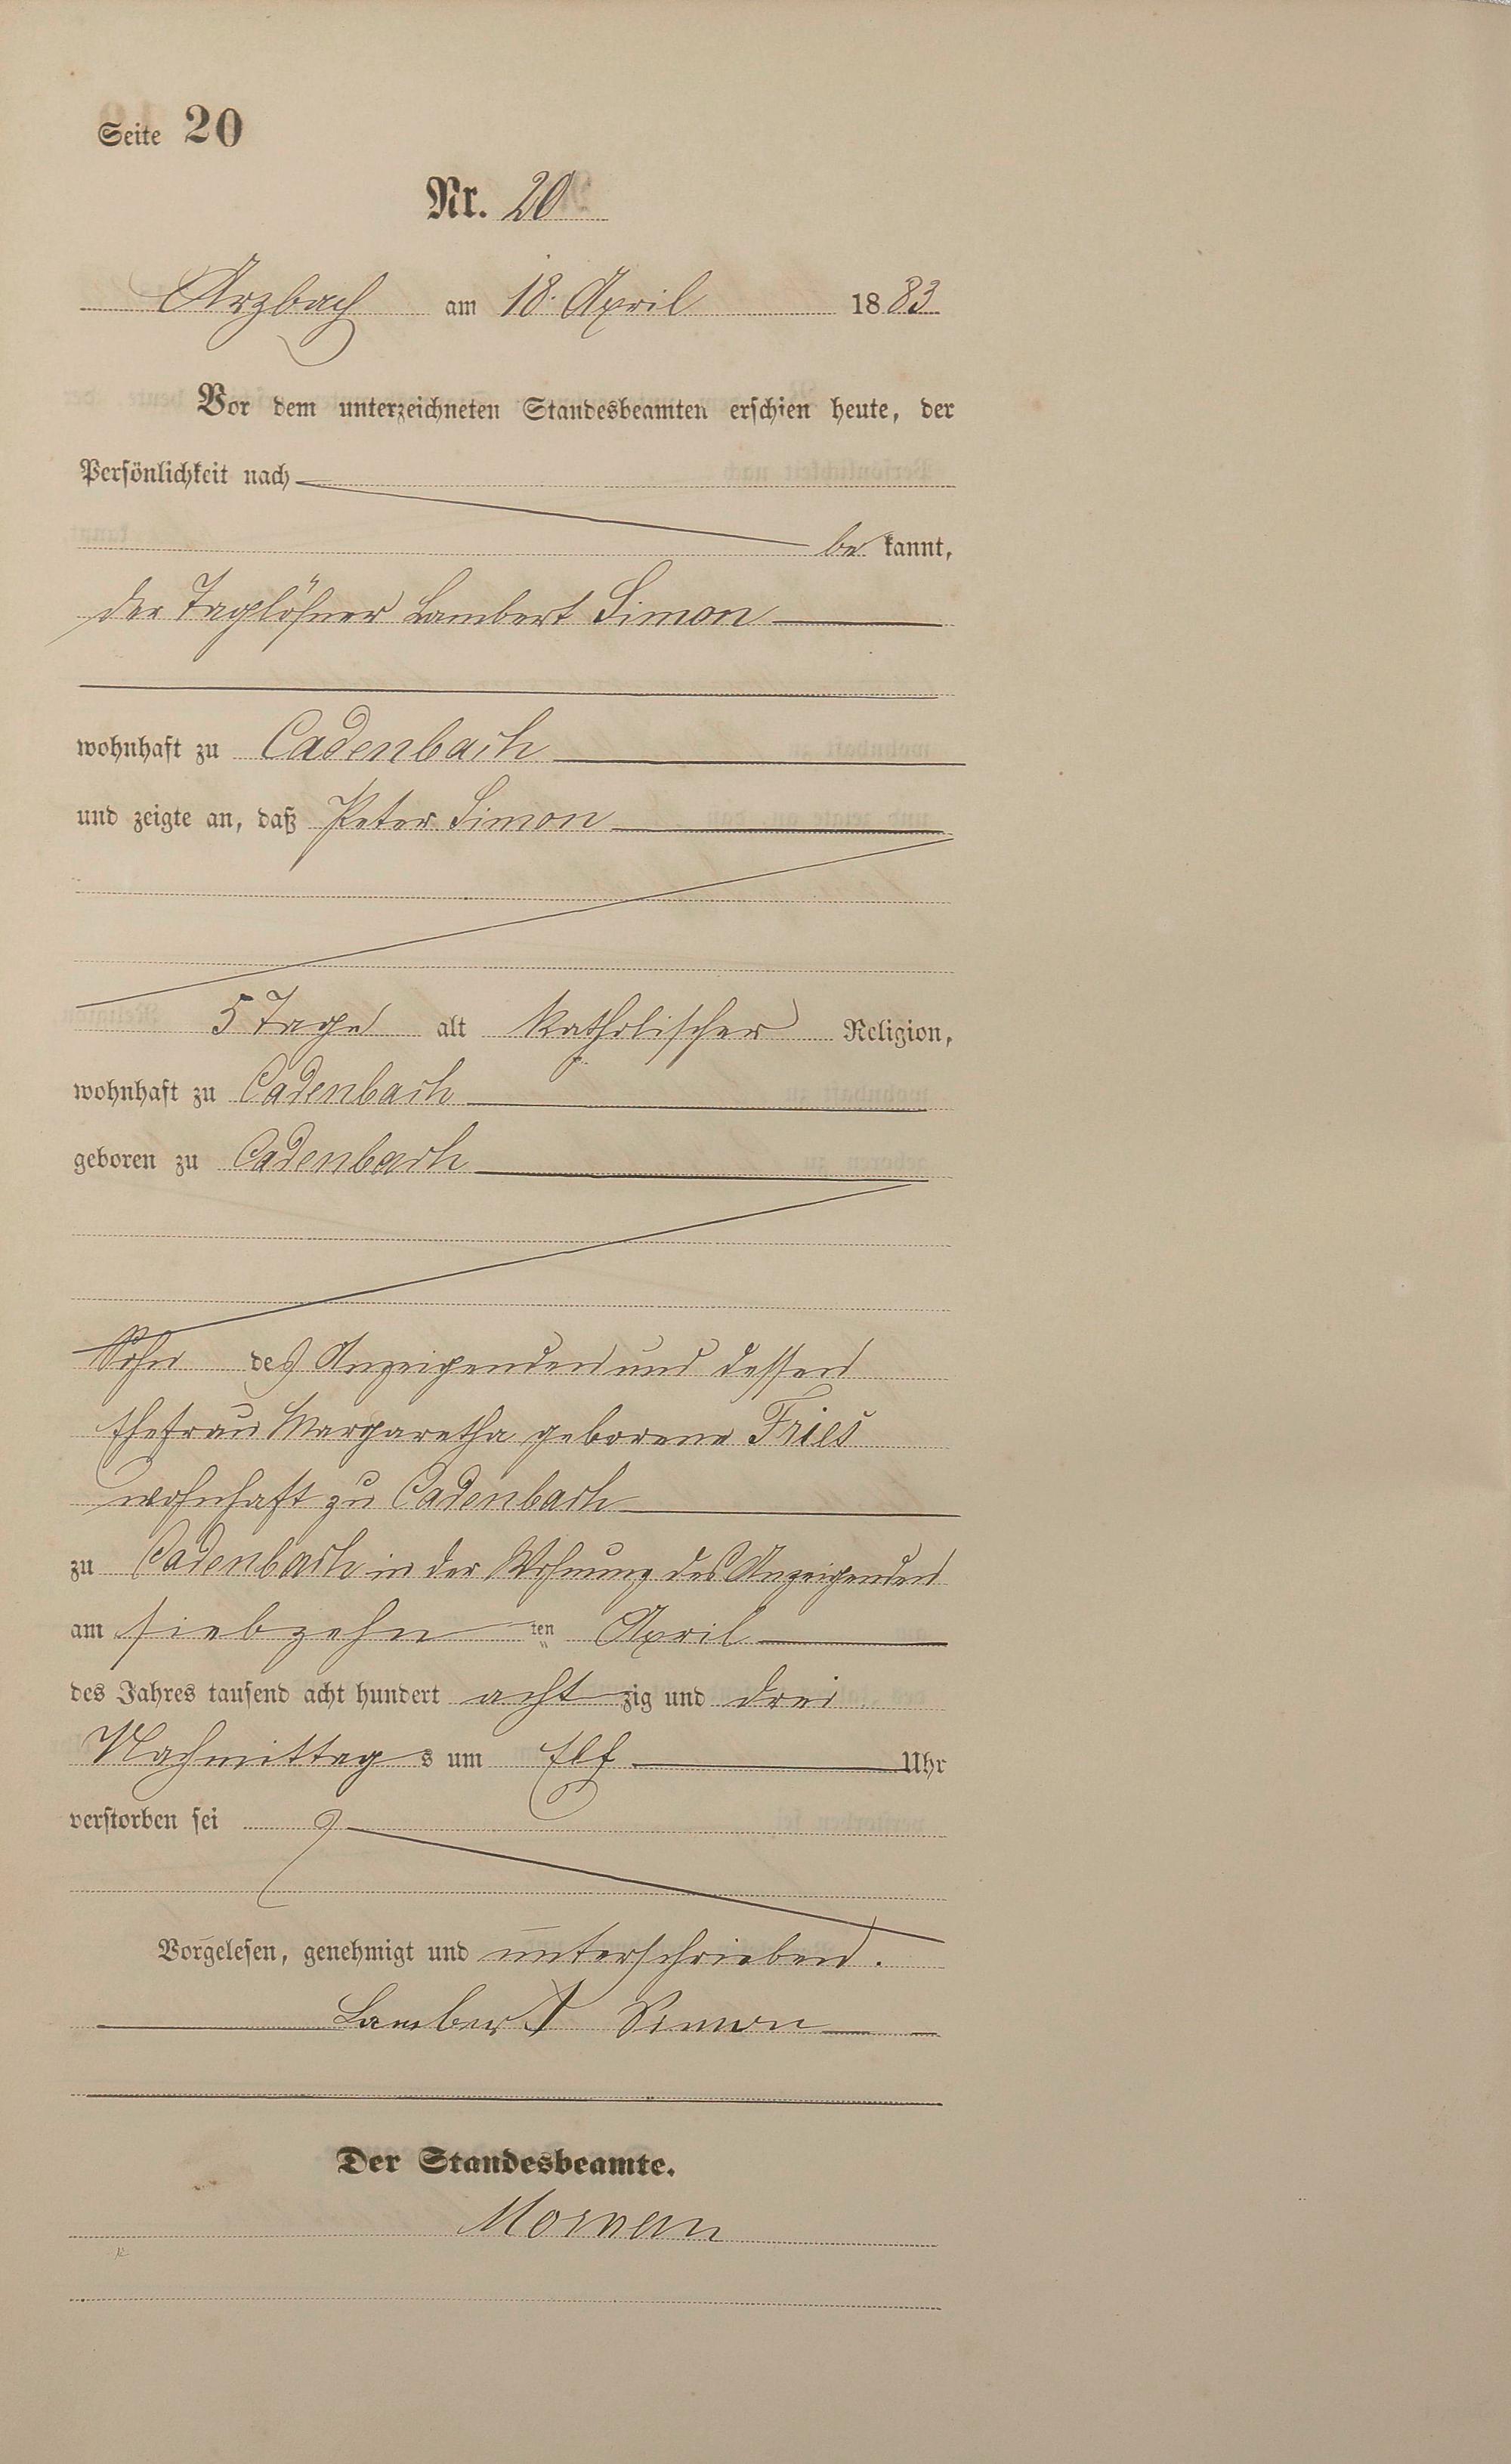 Seite 20
Nr. 20
Arzbach am 18. April 1883
Vor dem unterzeichneten Standesbeamten erschien heute, der
Persönlichkeit nach
be kannt,
der Taglöhner Lambert Simon
wohnhaft zu Cadenbach
und zeigte an, daß Peter Simon
5 Tage alt katholischer Religion,
wohnhaft zu Cadenbach
geboren zu Cadenbach
Sohn des Anzeigenden und dessen
Ehefrau Margaretha geborene Fries
wohnhaft zu Cadenbach
zu Cadenbach in der Wohnung des Anzeigenden
am siebzehn ten April
des Jahres tausend acht hundert acht zig und drei
Nachmittag s um Elf Uhr
verstorben sei
Vorgelesen, genehmigt und unterschrieben.
Lambert Simon
Der Standesbeamte.